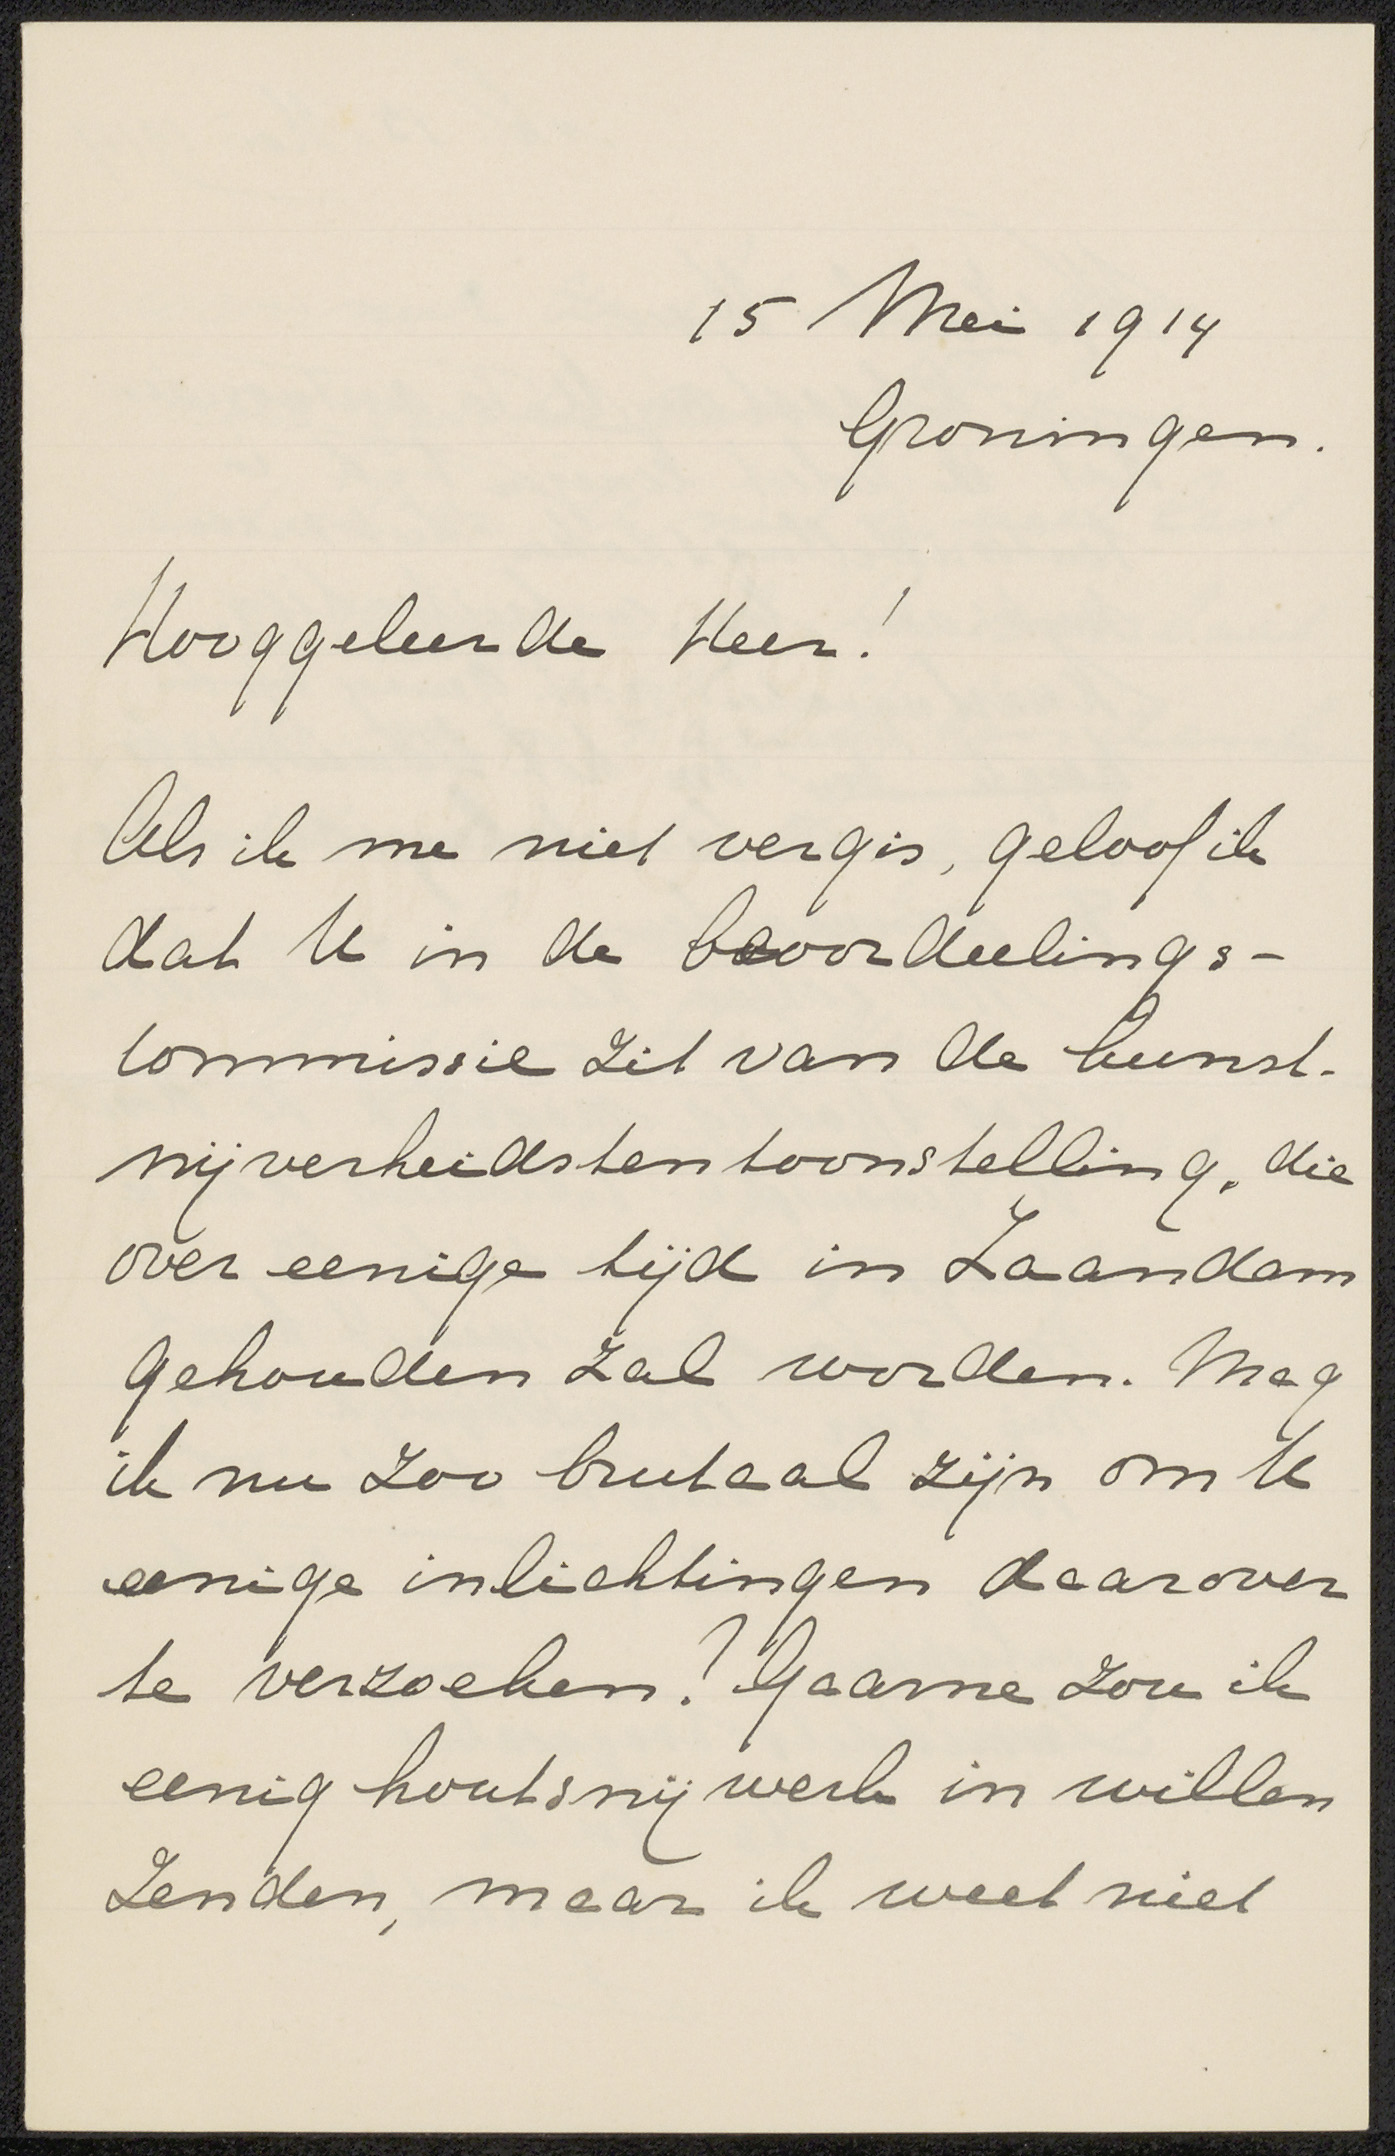 15 Mei 1914
Groningen.
Hooggeleerde Heer!
Als ik me niet vergis, geloof ik
dat U in de beoordeelings-
commissie zit van de kunst-
nijverheidstentoonstelling, die
over eenige tijd in Zaandam
gehouden zal worden. Mag
ik nu zoo brutaal zijn om U
eenige inlichtingen daarover
te verzoeken? Gaarne zou ik
eenig houtsnijwerk in willen
zenden, maar ik weet niet